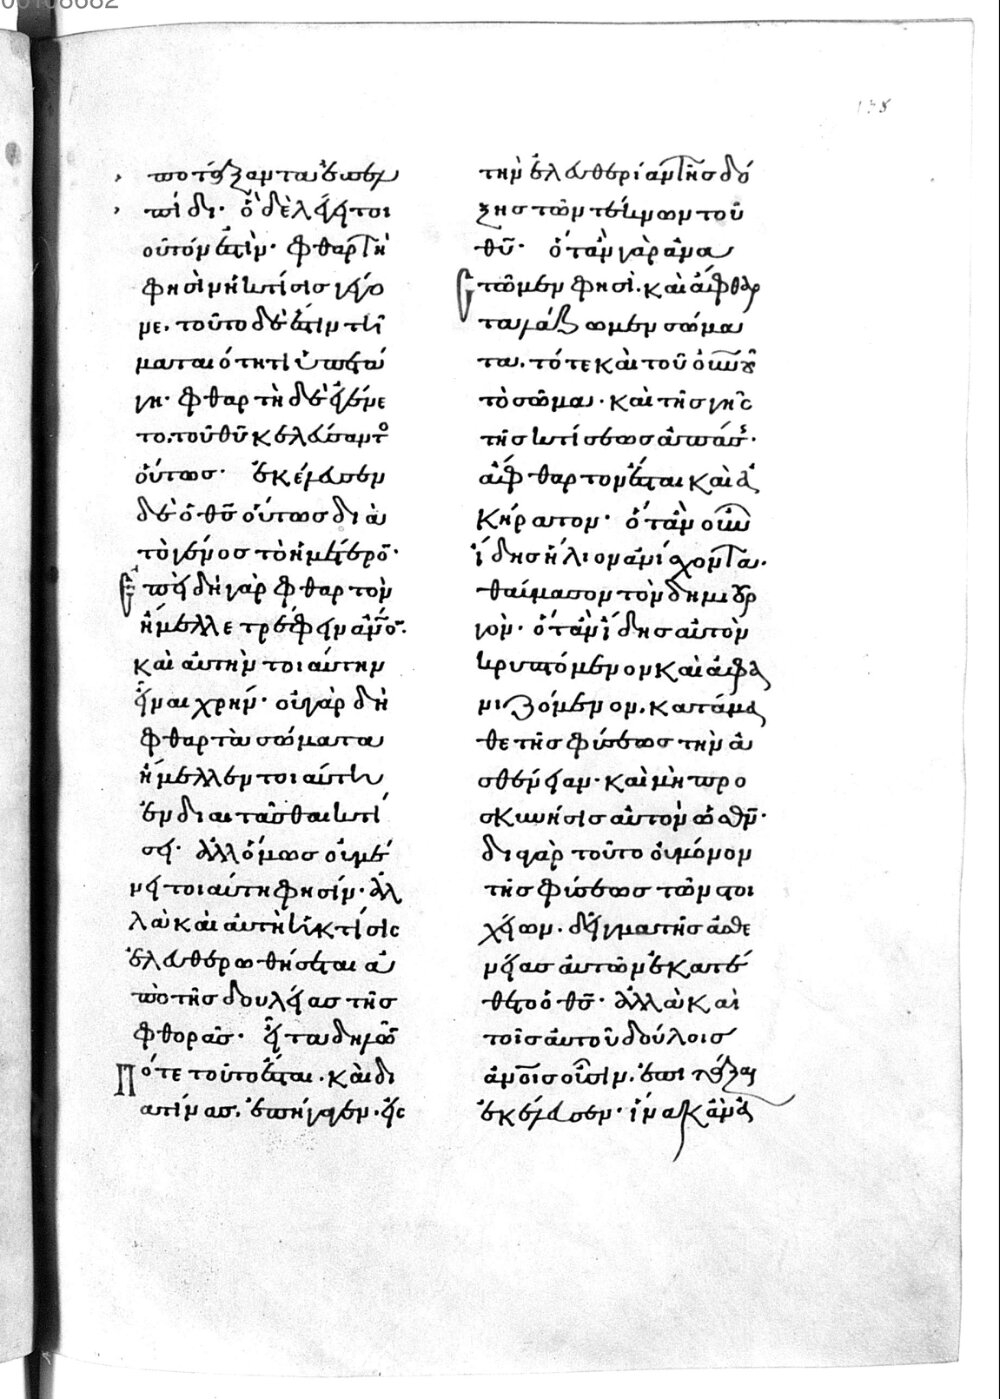 ποτάξαντα ἐπ' ἐλ
πίδι· ὃ δὲ λέγει τοι
οῦτόν ἐστιν· φθαρτὴ
φησὶν ἡ κτίσις γέγο
νε. τοῦτο δέ ἐστιν τῇ
ματαιότητι ὑπετά
γη· φθαρτὴ δὲ ἐγένε
το, τοῦ θυ κελεύσαντο
οὕτως· ἐκέλευσεν
δὲ ὁ θς οὕτως διὰ
τὸ γένος τὸ ἡμέτερον·
Ἐπειδὴ γὰρ φθαρτὸν
ἤμελλε τρέφειν ανον·
καὶ αὐτὴν τοιαύτην
εἶναι χρῆν· οὐ γὰρ δὴ
φθαρτὰ σώματα
ἤμελλεν τοιαύτῃ
ἐνδιαιτᾶσθαι κτί
σει· ἀλλ' ὅμως οὐ μέ
νει τοιαύτη φησίν· ἀλ
λὰ καὶ αὐτὴ ἡ κτίσις
ἐλευθερωθήσεται ἀ
πὸ τῆς δουλείας τῆς
φθορᾶς· εἶτα δηλῶν
Πότε τοῦτο ἔσται. καὶ δι
ὰ τίνας, ἐπήγαγεν· εἰς
τὴν ἐλευθερίαν τῆς δό
ξης τῶν τέκνων τοῦ
θυ· ὅταν γὰρ ἀνα
στῶμεν φησὶ. καὶ ἄφθαρ
τα λάβωμεν σώμα
τα. τότε καὶ τοῦ οὐνοῦ
τὸ σῶμα· καὶ τῆς γῆς
τῆς κτίσεως ἁπάσης·
ἄφθαρτον ἔσται καὶ ἀ
κήρατον· ὅταν οὖν
ἴδῃς ἥλιον ἀνίσχοντα.
θαύμασον τὸν δημιουρ
γόν· ὅταν ἴδῃς αὐτὸν
κρυπτόμενον καὶ ἀφα
νιζόμενον. κατάμα
θε τῆς φύσεως τὴν ἀ
σθένειαν· καὶ μὴ προ
σκυνήσῃς αὐτὸν ὡς θν·
διὰ γὰρ τοῦτο οὐ μόνον
τῆς φύσεως τῶν στοι
χείων. δεῖγμα τῆς ἀσθε
νείας αὐτῶν ἐκατέ
θετο ὁ θς· ἀλλὰ καὶ
τοῖς αὐτοῦ δούλοις
ανοις οὖσιν. ἐπιτάξαι
ἐκέλευσεν· ἵνα κἂν ἀ